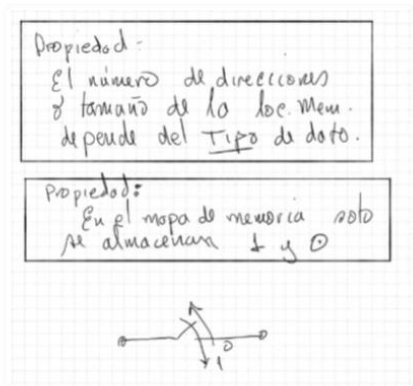 Propiedad:
El número de direcciones
y tamaño de la loc. Mem.
depende del Tipo de dato.
Propiedad:
En el mapa de memoria solo
se almacenan 1 y 0
0
1